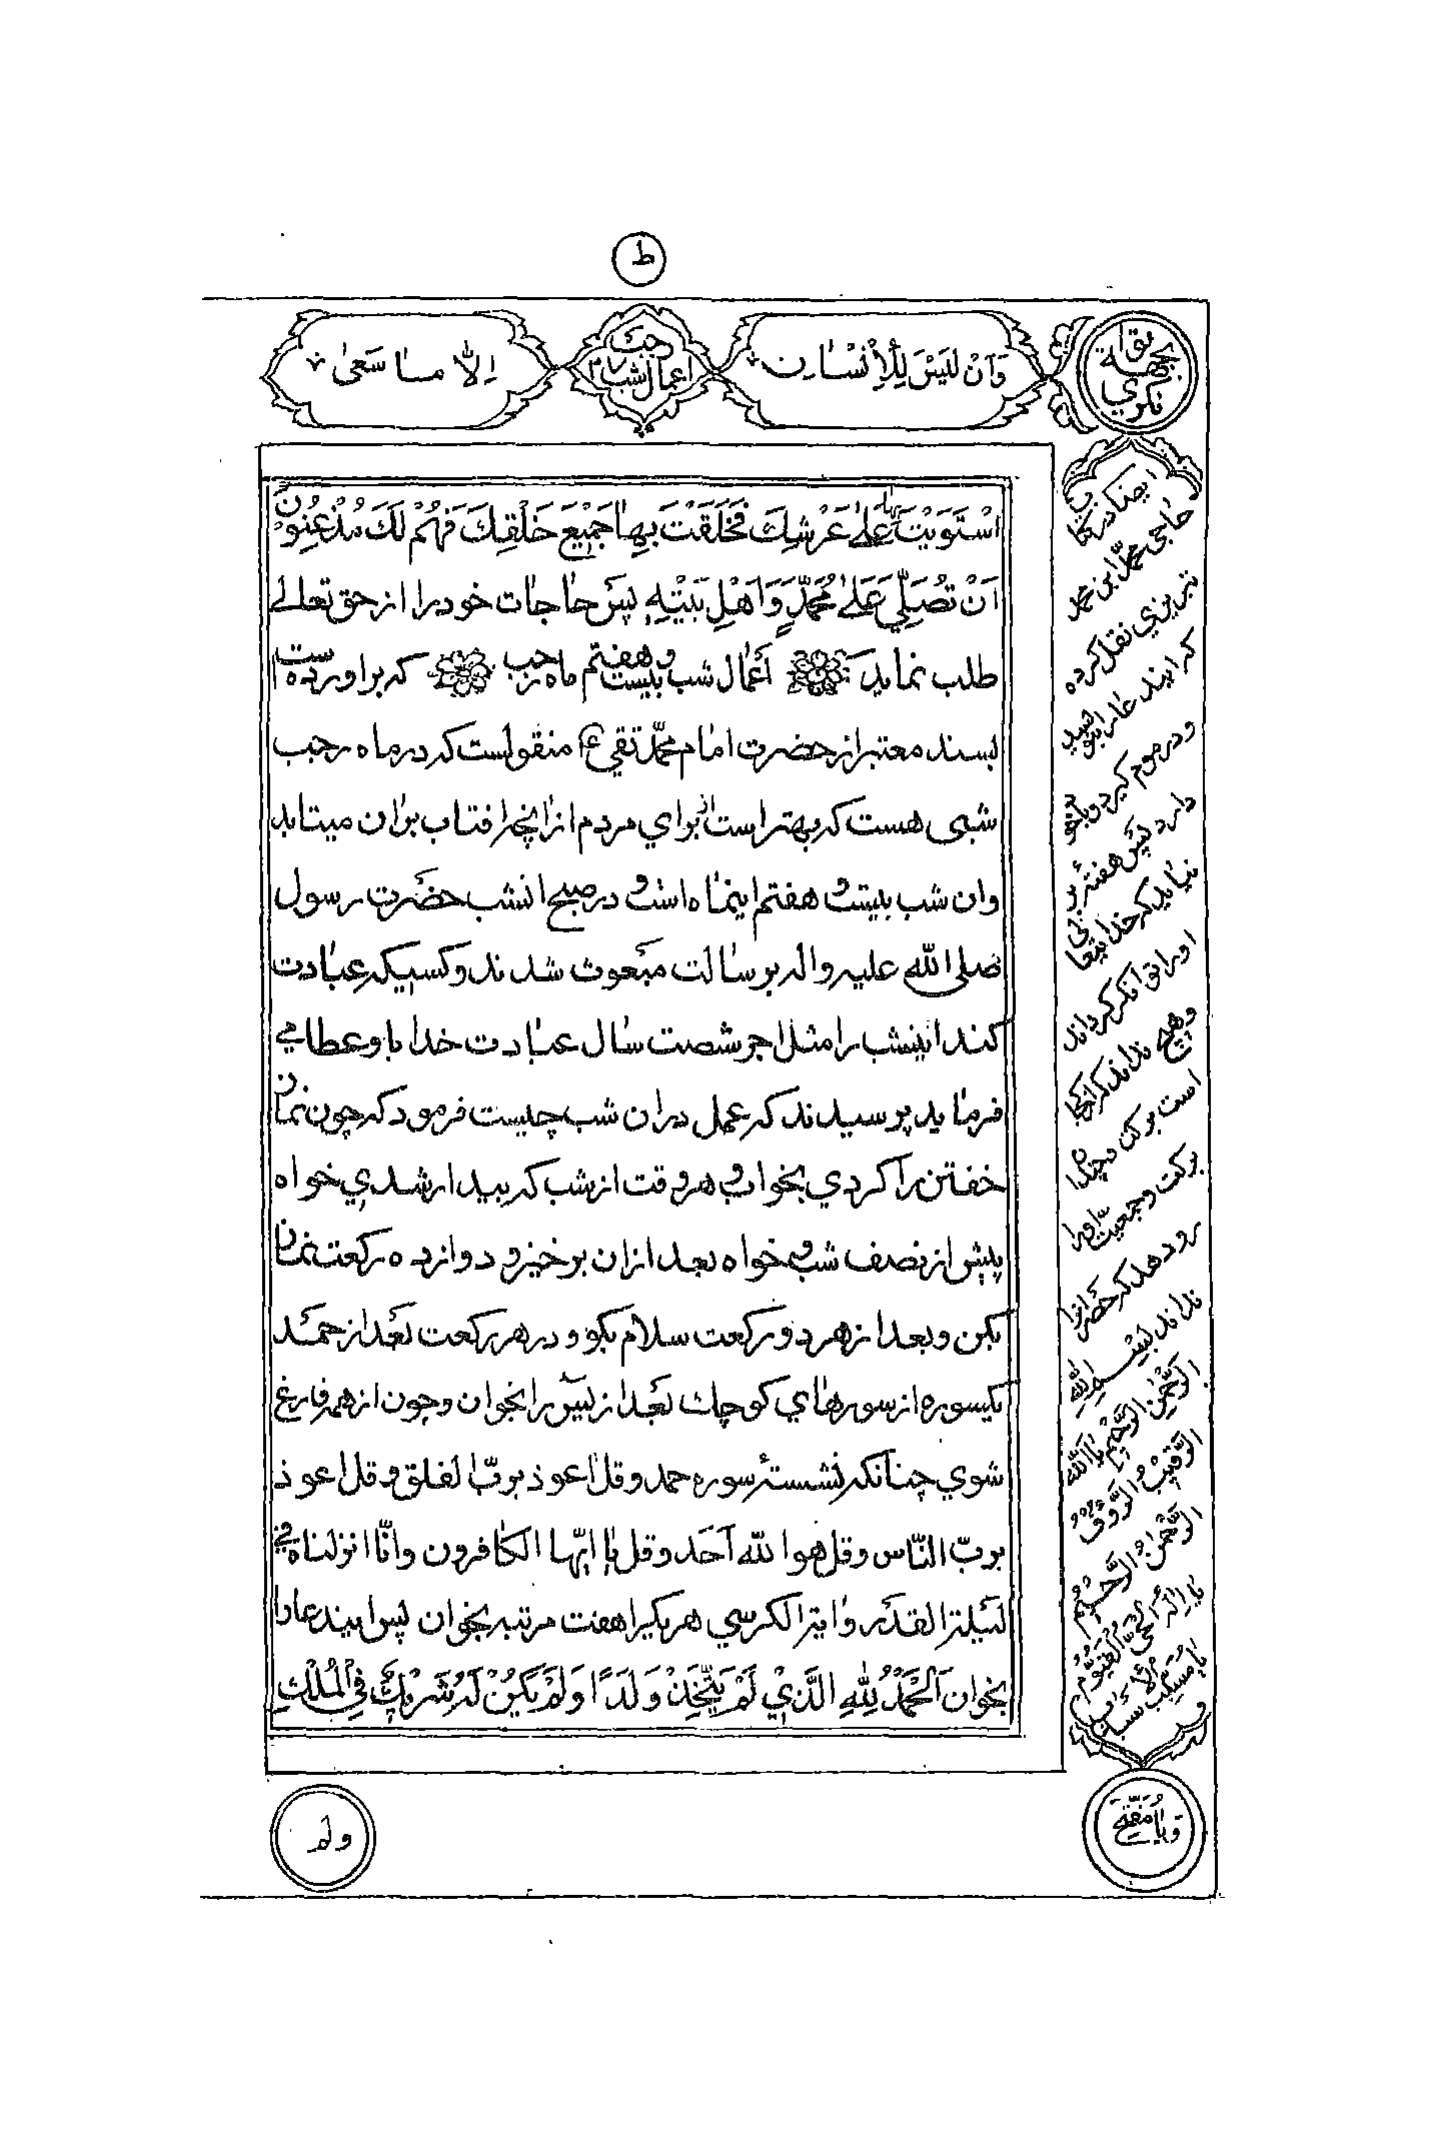 ط
وَاَنْ لَيْسَ لِلْاِنْسٰانِ
اعمال شب ۲۷ رجب
اِلّاٰ مٰا سَعیٰ
بجهة توانكري
اسْتَوَيْتَ بِهٰا عَلیٰ عَرْشِكَ فَخَلَقْتَ بِهٰا جَمْيْعَ خَلْقِكَ فَهُمْ لَكَ مُذْعِنُونَ
اَنْ تُصَلِّيَ عَلیٰ مُحَمَّدٍ وَاَهْلِ بَيْتِهِ پس حاجات خود را از حق تعالی
طلب نمايد اعمال شب بيست و هفتم ماه رجب كه براورده است
بسند معتبر از حضرت امام محمّد تقي ع منقولست كه در ماه رجب
شبی هست كه بهتر است از براي مردم از انچه افتاب بران ميتابد
وان شب بيست و هفتم اينماه است و در صبح انشب حضرت رسول
صلی الله عليه واله برسالت مبعوث شدند و كسيكه عبادت
كند اينشب را مثل اجر شصت سال عبادت خدا باو عطا مي
فرمايد پرسيدند كه عمل دران شب چيست فرمود كه چون نماز
خفتن را كردي بخواب و هر وقت از شب كه بيدار شدي خواه
پيش از نصف شب و خواه بعد ازان برخيز و دوازده ركعت نماز
بكن و بعد از هر دو ركعت سلام بگو و در هر ركعت بعد از حمد
يكسوره از سورهاي كوچك بعد از يس را بخوان و چون از همه فارغ
شوي چنانكه نشستۀ سوره حمد و قل اعوذ بربّ الفلق و قل اعوذ
بربّ النّاس و قل هو الله احد و قل يا ايّها الكافرون و انّا انزلناه في
ليلة القدر و اية الكرسي هر يك را هفت مرتبه بخوان پس ايندعا را
بخوان اَلْحَمْدُ لِلّٰهِ الَّذِيْ لَمْ يَتَّخِذْ وَلَدًا وَلَمْ يَكُنْ لَهُ شَرْيكٌ فِي الْمُلْكِ
ايضا در كتاب
حاجی محمّد ابن محمد
تبريزي نقل كرده
كه ايند عارا بنويسد
و در موم گيرد و با خود
دارد پس هفتۀ بر
نيايد كه خدايتعا لی
اورا توانگر گرداند
وهيچ نداند كه از كجا
است بركت و چندان
بركت و جمعيت اورا
رو دهد كه حصر انرا
نداند بِسْمِ اللهِ
الرَّحْمٰنِ الرَّحْيمِ يٰا اَللهُ
الرَّقيْبُ الرَّؤُفُ
الرَّحْمٰنُ الرَّحْيمُ
يٰا اِلٰهُ الْحَيُّ الْقَيُّوْمُ
يٰا مُسَبِّبَ الْاَسْبٰابِ
وَيٰا مُفَتِّحَ
ولم